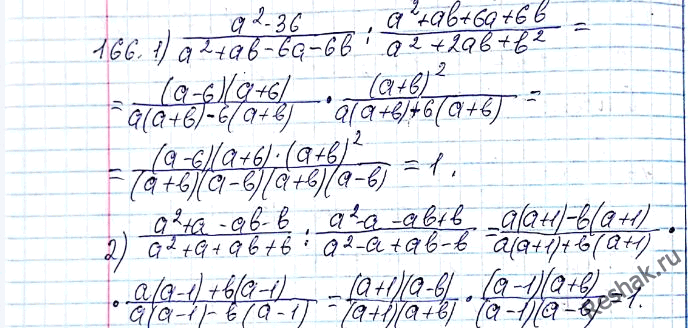 166. 1) (a² - 36)/(a² + ab - 6a - 6b) : (a² + ab + 6a + 6b)/(a² + 2ab + b²) =
= (a-6)(a+6)/(a(a+b) - 6(a+b)) · (a+b)²/(a(a+b) + 6(a+b)) =
= (a-6)(a+6)·(a+b)²/((a+b)(a-6)(a+b)(a-6)) = 1.
2) (a² + a - ab - b)/(a² + a + ab + b) : (a² - a - ab + b)/(a² - a + ab - b) = (a(a+1) - b(a+1))/(a(a+1) + b(a+1)) ·
· (a(a-1) + b(a-1))/(a(a-1) - b(a-1)) = (a+1)(a-b)/((a+1)(a+b)) · (a-1)(a+b)/((a-1)(a-b)) = 1.
Reshak.ru